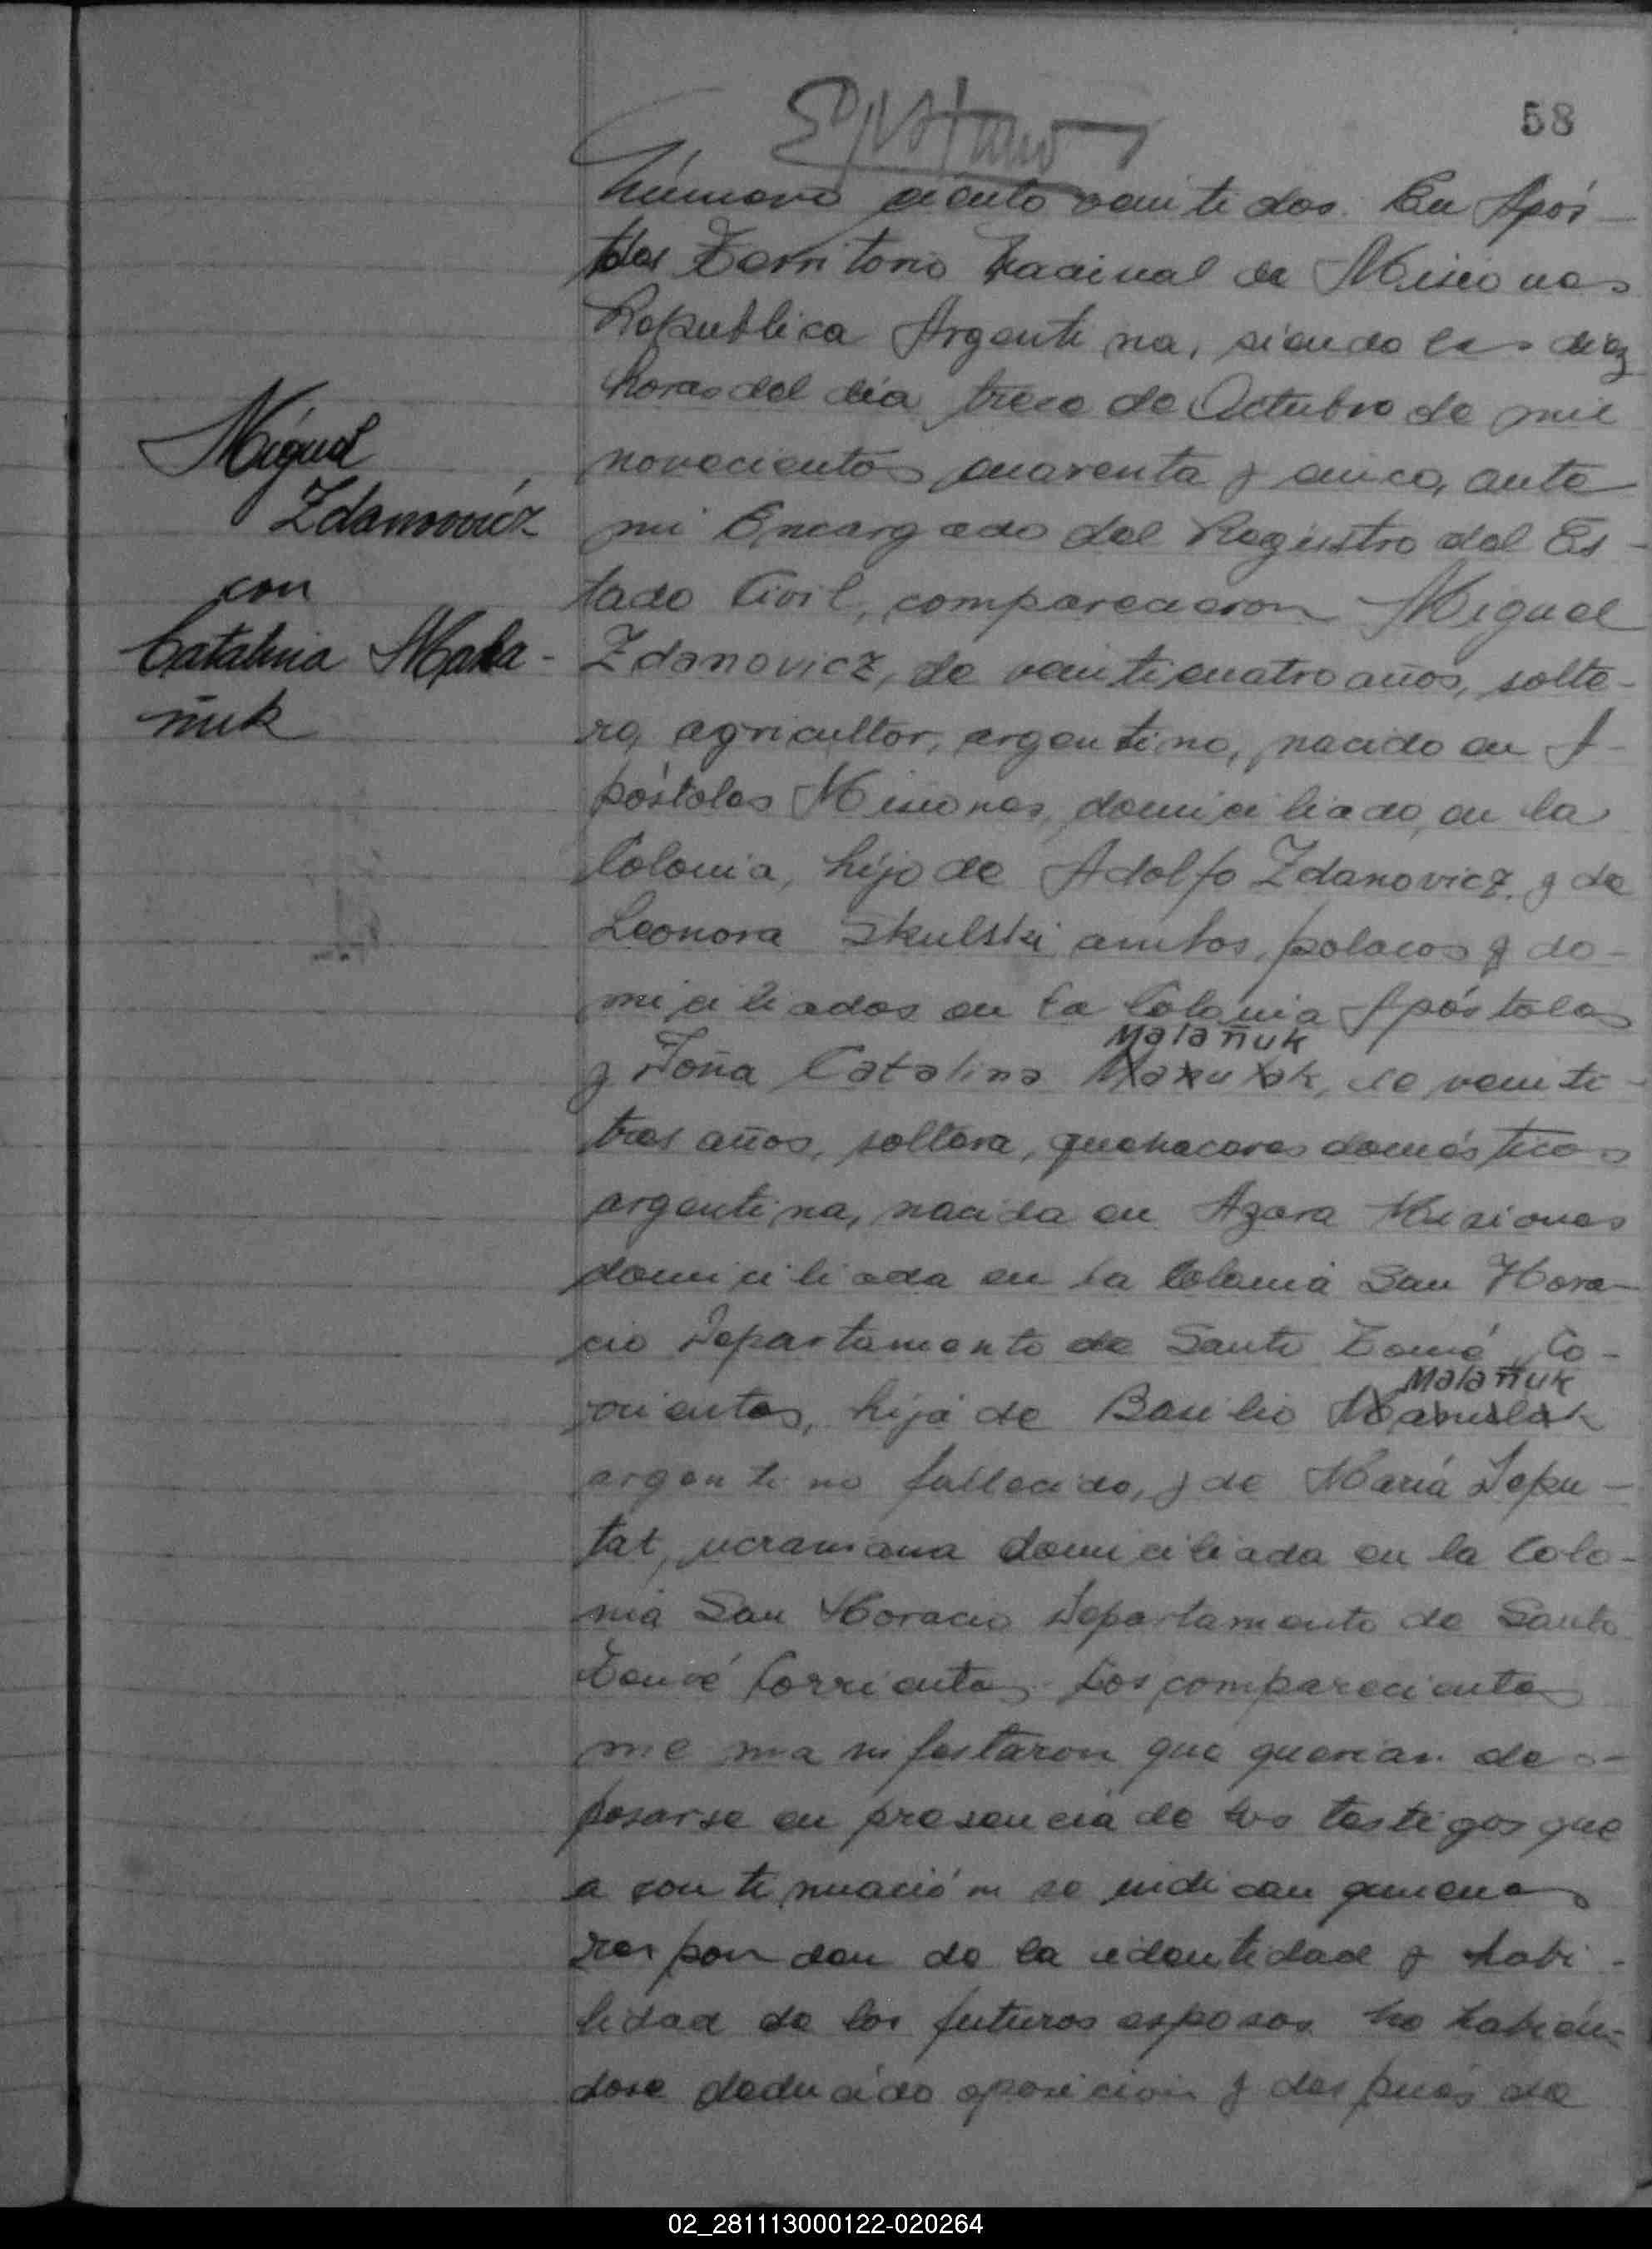 58
Número ciento veinte dos. En Após-
toles Territorio Nacional de Misiones
República Argentina, siendo las diez
horas del día trece de Octubre de mil
novecientos cuarenta y cinco, ante
mi Encargado del Registro del Es-
tado Civil, comparecieron Miguel
Zdanovicz, de veinticuatro años, solte-
ro, agricultor, argentino, nacido en A-
póstoles Misiones, domiciliado en la
Colonia, hijo de Adolfo Zdanovicz y de
Leonora Skulski ambos, polacos y do-
miciliados en la Colonia Apóstoles
Malañuk
y Doña Catalina, de veinti-
tres años, soltera, quehaceres domésticos
argentina, nacida en Azara Misiones
domiciliada en la Colonia San Hora-
cio Departamento de Santo Tomé, Co-
Malañuk
rrientes, hija de Basilio
argentino fallecido, y de María Depu-
tat, ucraniana domiciliada en la Colo-
nia San Horacio Departamento de Santo
Tomé Corrientes. Los comparecientes
me manifestaron que querian des-
posarse en presencia de los testigos que
a continuación se indican quienes
responden de la identidad y habi-
lidad de los futuros esposos no habién-
dose deducido oposición y después de
Miguel
Zdanovicz
con
Catalina Mala-
ñuk
02_281113000122-020264